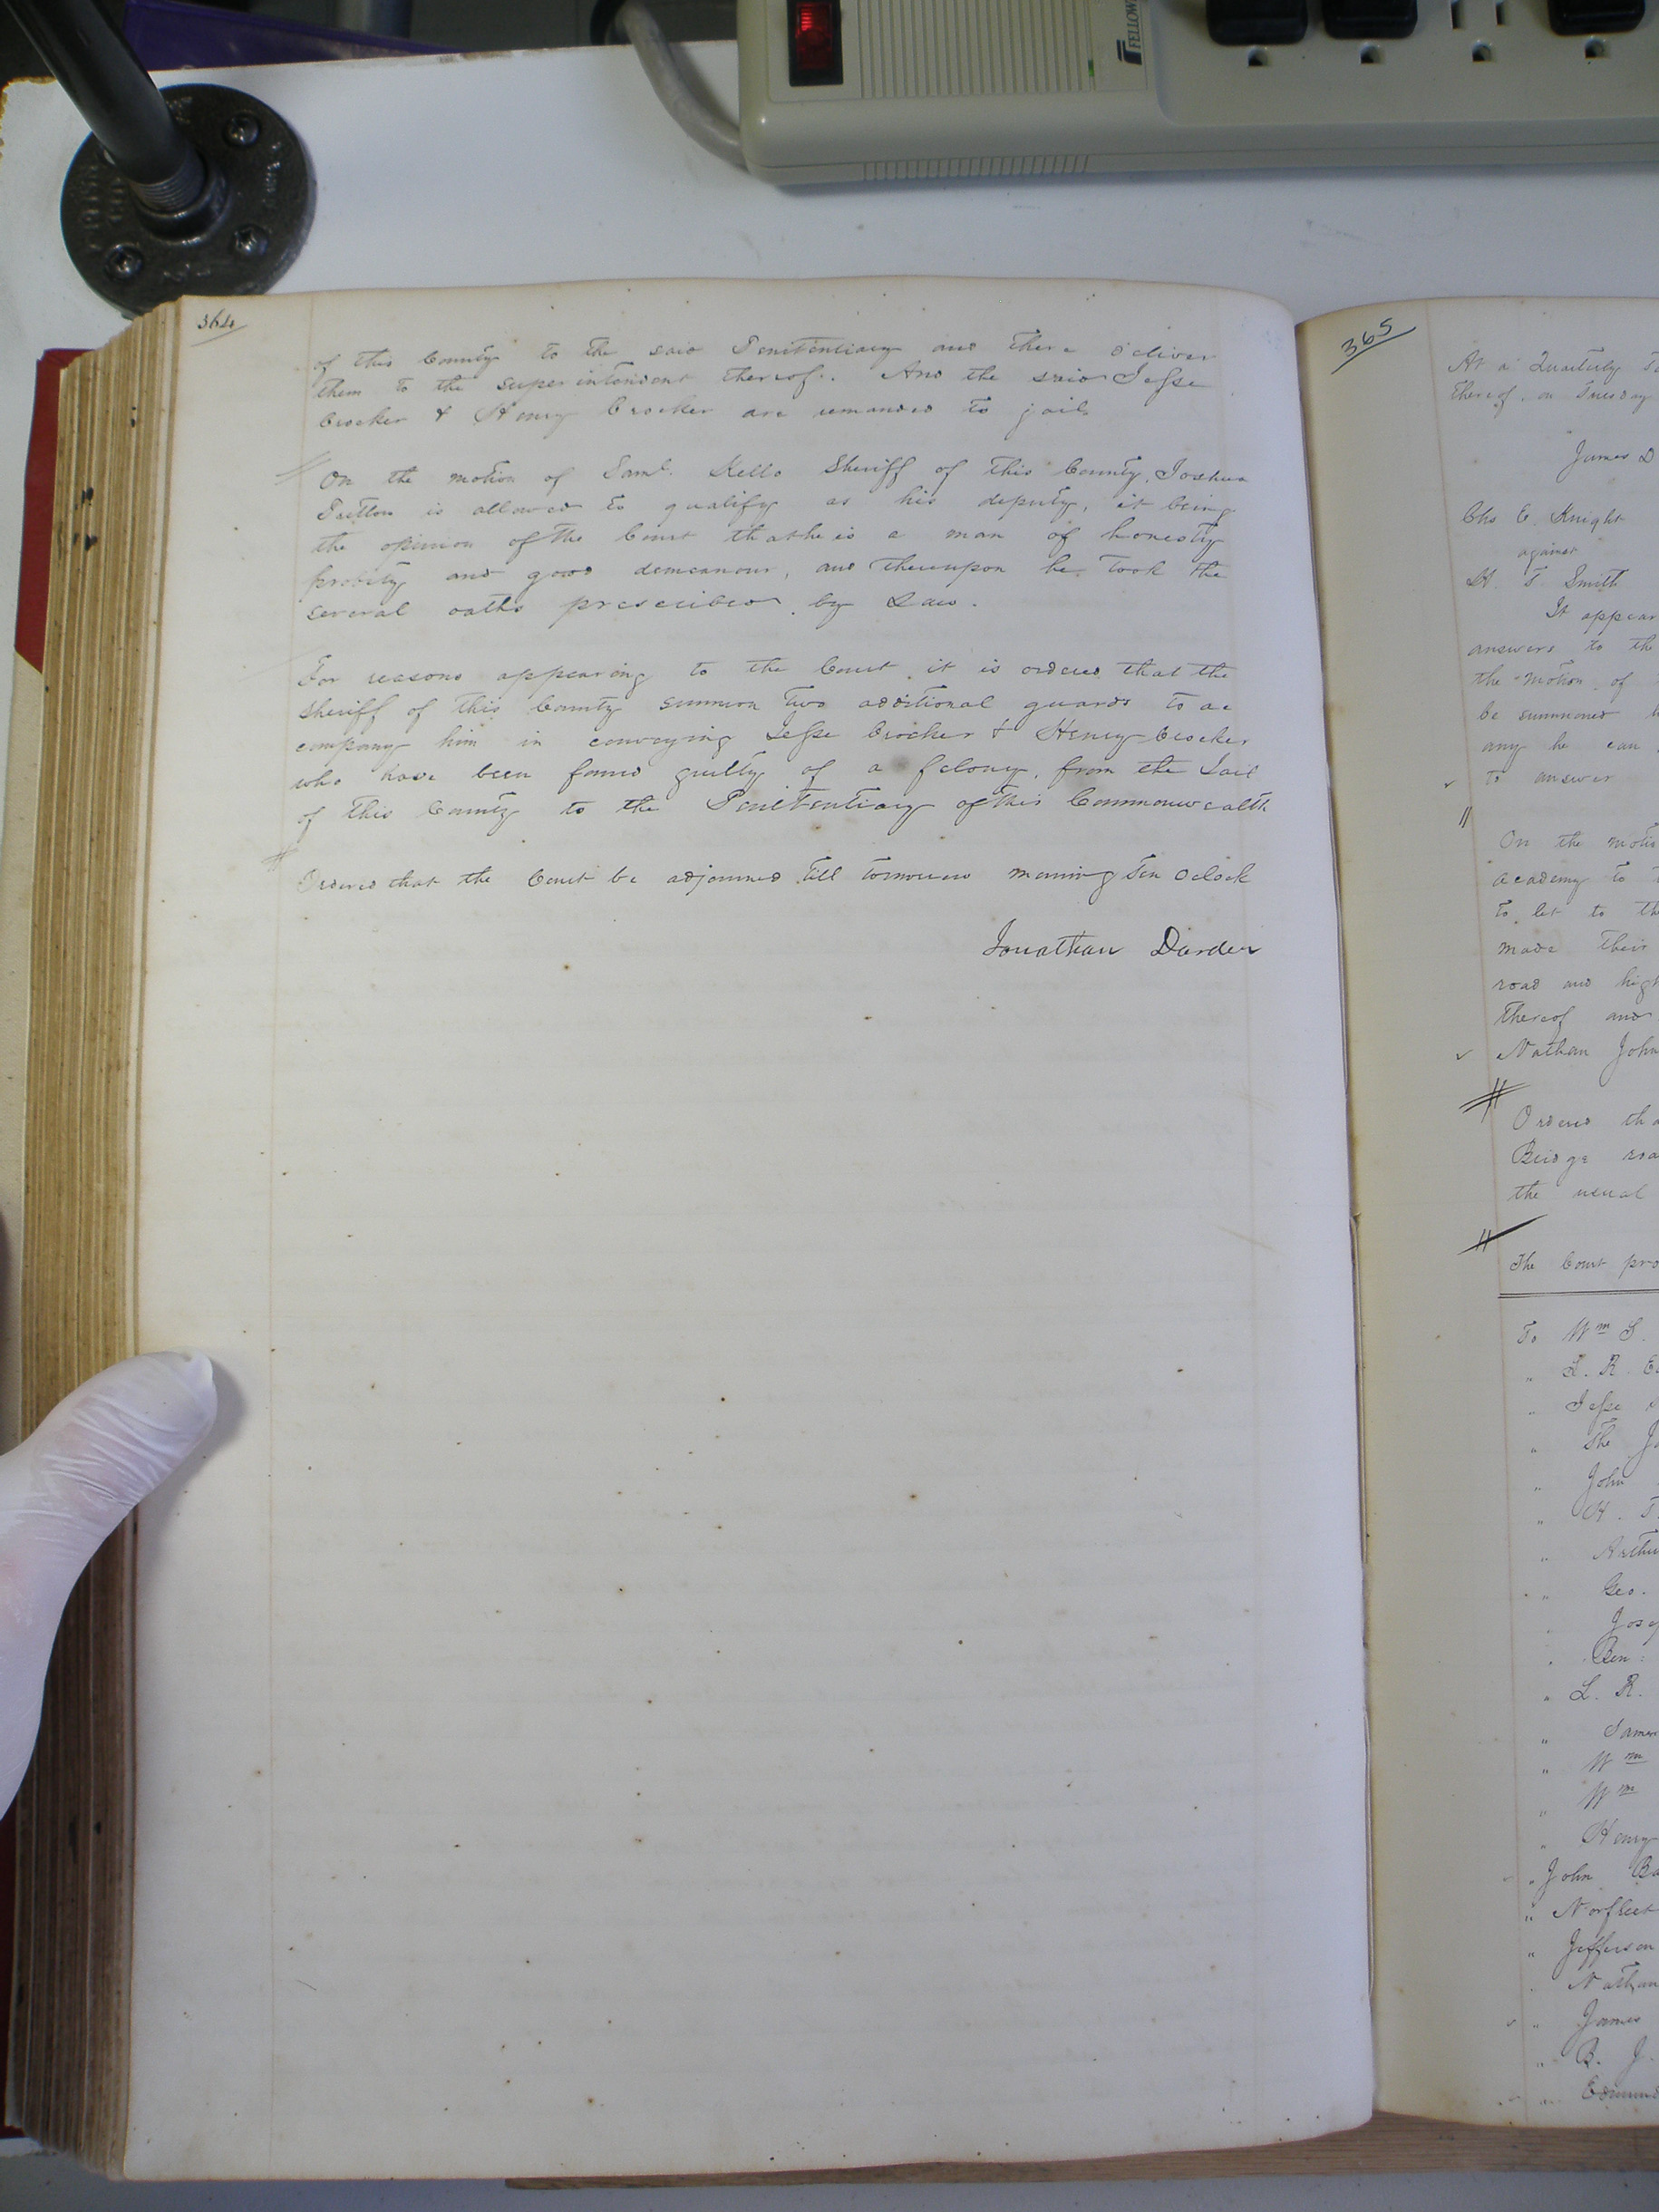 FELLOW
364
of this County to the said Penitentiary and there deliver
them to the superintendant thereof. And the said Jesse
Crocker & Henry Crocker are remanded to jail
On the motion of Saml. Kello Sheriff of this County, Joshua
Pretlow is allowed to qualify as his deputy, it being
the opinion of the Court that he is a man of honesty
probity and good demeanour, and thereupon he took the
several oaths prescribed by Law.
For reasons appearing to the Court it is ordered that the
Sheriff of this County summon two additional guards to ac
company him in conveying Jesse Crocker & Henry Crocker
who have been found guilty of a felony, from the Jail
of this County to the Penitentiary of this Commonwealth
Ordered that the Court be adjourned till tomorrow morning ten oclock
Jonathan Darden
365
At a Quarterly
thereof, on Tuesday
James D
Chs C. Knight
against
H. T. Smith
It appear
answers to the
the motion of
be summoned
any he can
to answer
On the motio
academy to
to let to th
made their
road and high
thereof and
Nathan John
Ordered tha
Bridge roa
the usual
The Court pro
To Wm S.
" L. R.
" Jesse
" The
" John
" H. T.
" Arthu
" Geo.
Josep
Ben:
" L. R.
" James
" Wm
" Wm
" Henry
" John Ba
" Norfleet
" Jefferson
Nathan
" James
" B. J.
" Edmund